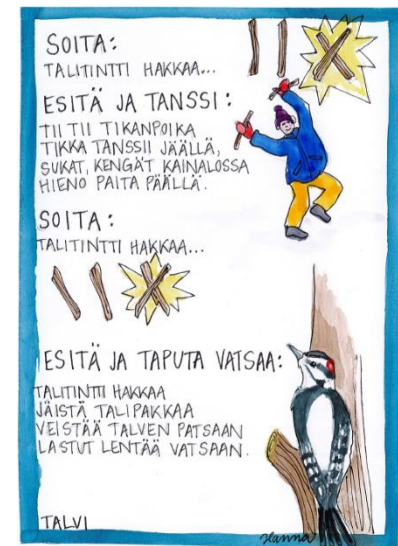 SOITA:
TALITINTTI HAKKAA...
ESITÄ JA TANSSI:
TII TII TIKANPOIKA
TIKKA TANSSII JÄÄLLÄ,
SUKAT, KENGÄT KAINALOSSA
HIENO PAITA PÄÄLLÄ.
SOITA:
TALITINTTI HAKKAA...
ESITÄ JA TAPUTA VATSAA:
TALITINTTI HAKKAA
JÄISTÄ TALIPAKKAA
VEISTÄÄ TALVEN PATSAAN
LASTUT LENTÄÄ VATSAAN.
TALVI
Hanna